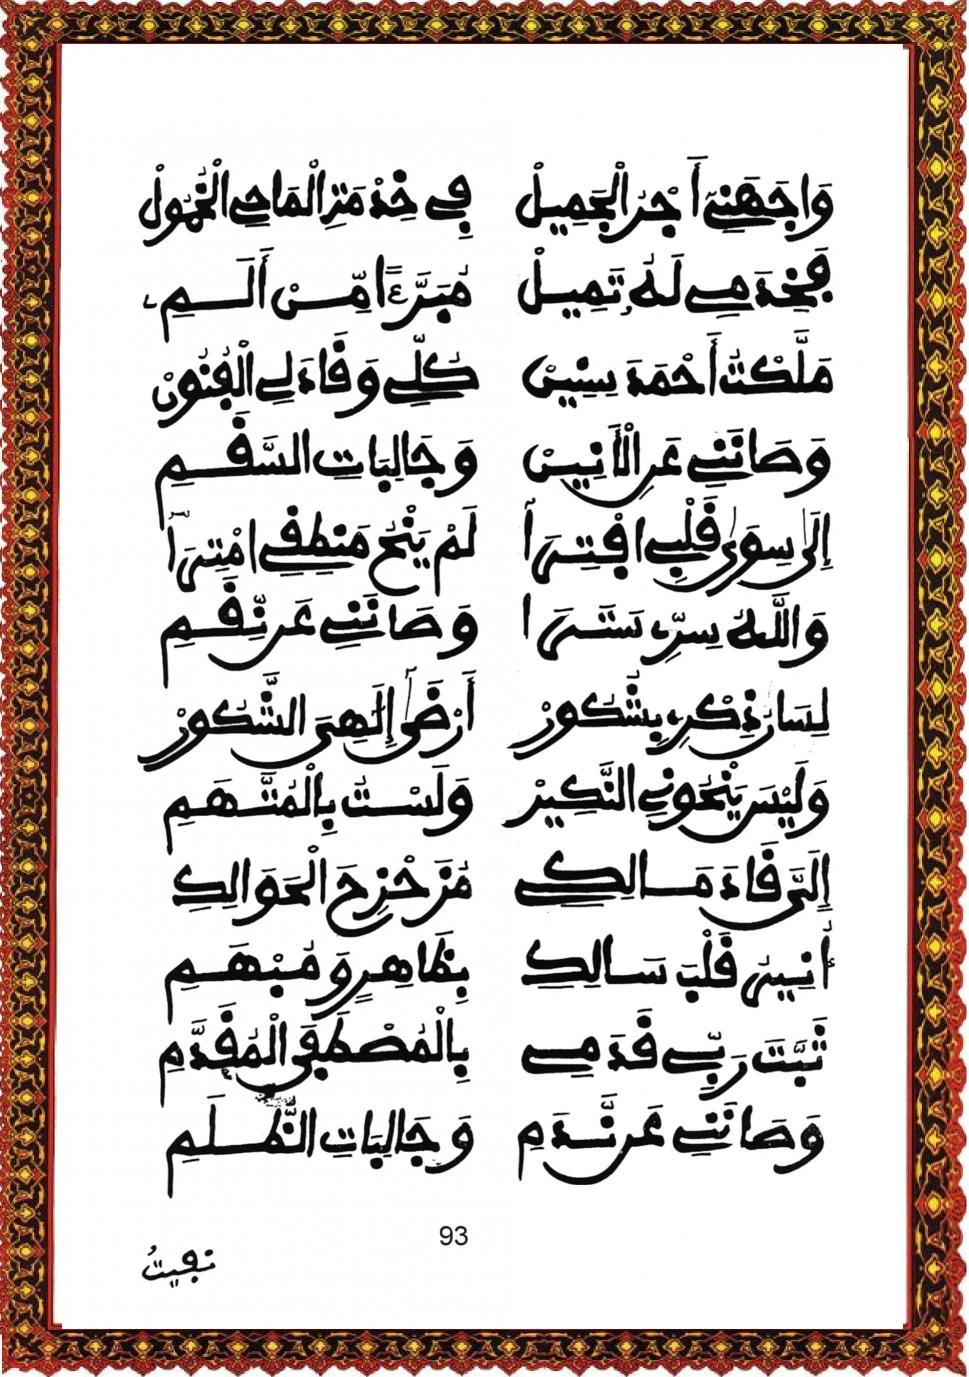 وَاجَهَنِي أَجْرُ الْجَمِيلْ فِي خِدْمَةِ الْمَاحِي الْخُمُولْ
فَخِدَمِي لَهُ تَمِيلْ مُبَرَّءًا مِّنْ أَلَمِ
مَلَّكْتُ أَحْمَدَ سِنِينْ كُلِّي وَقَادَ لِي الْفُنُونْ
وَصَانَنِي عَنِ الْأَنِينْ وَجَالِبَاتِ السَّقَمِ
إِلَى سِوَى قَلْبِ افْتِرَا لَمْ يَنْحُ مَنْطِقِي امْتِرَا
وَاللَّهُ سِرِّي سَتَرَا وَصَانَنِي عَن نِّقَمِ
لِسَانُ ذِكْرِي بِشُكُورْ أَرْضَى إِلَهِيَ الشَّكُورْ
وَلَيْسَ يَنْحُونِي النَّكِيرْ وَلَسْتُ بِالْمُتَّهَمِ
إِلَيَّ قَادَ مَالِكِي مُزَحْزِحَ الْحَوَالِكِ
أُنِيرَ قَلْبَ سَالِكِ بِظَاهِرٍ وَمُبْهَمِ
ثَبَّتَ رَبِّي قَدَمِي بِالْمُصْطَفَى الْمُقَدَّمِ
وَصَانَنِي عَن نَّدَمِ وَجَالِبَاتِ الظُّلَمِ
93